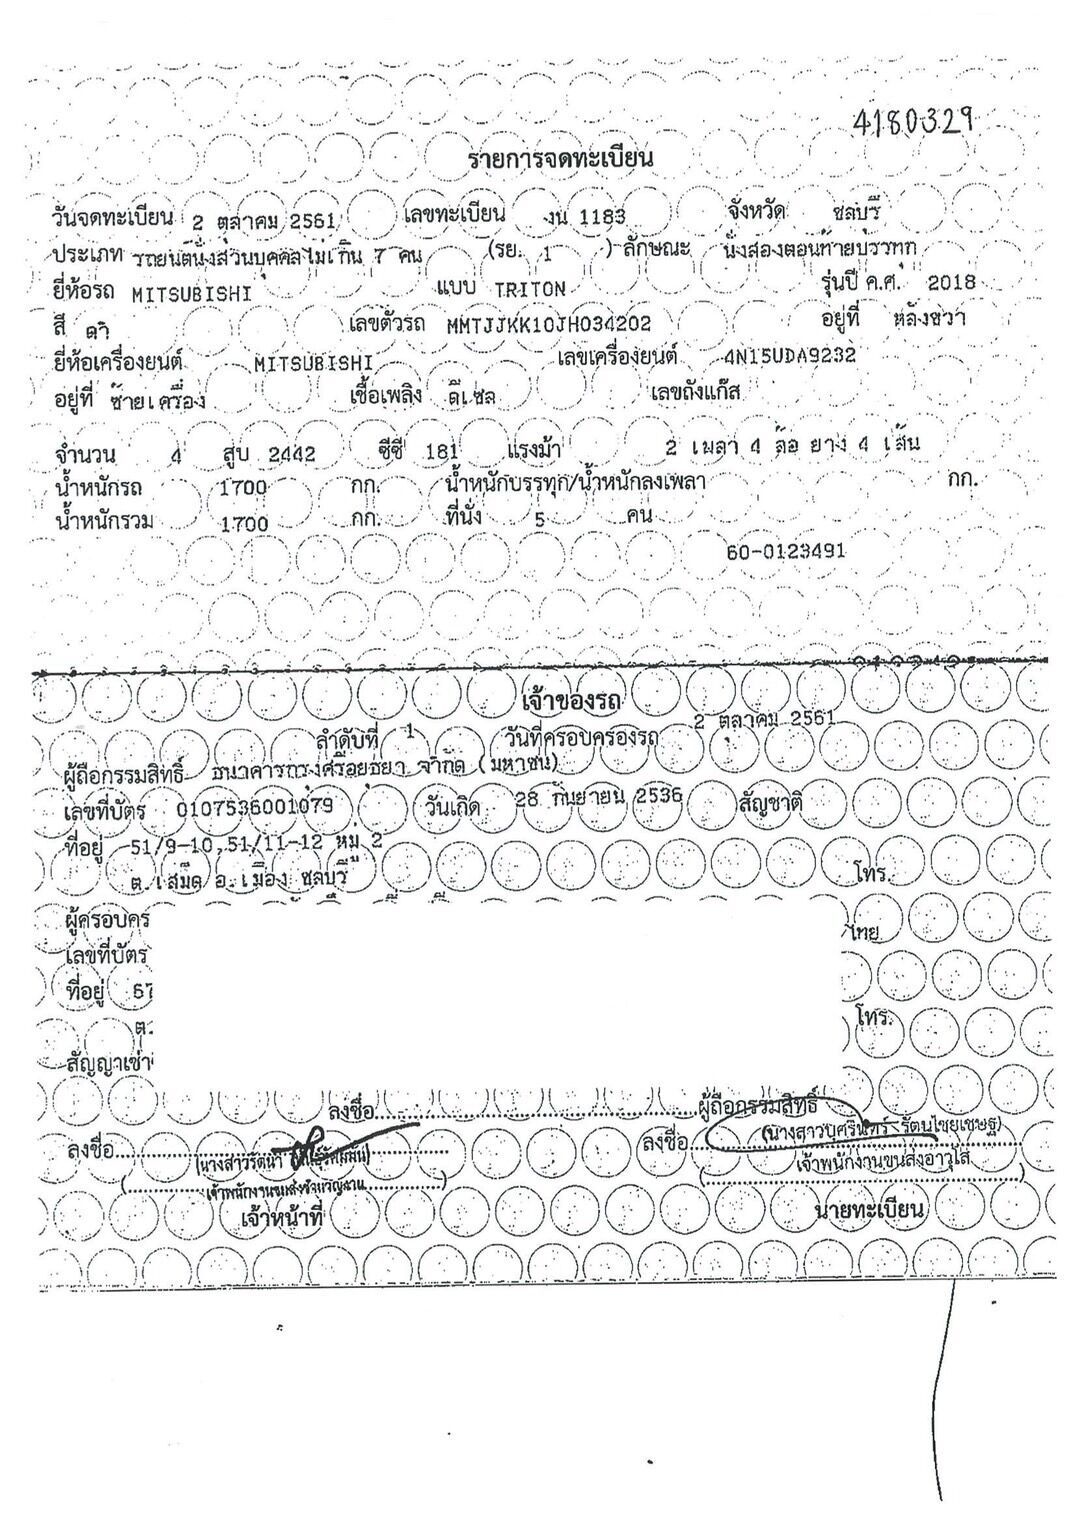 4180329
รายการจดทะเบียน
วันจดทะเบียน 2 ตุลาคม 2561 เลขทะเบียน งน 1183 จังหวัด ชลบุรี
ประเภท รถยนต์นั่งส่วนบุคคลไม่เกิน 7 คน (รย. 1 ) ลักษณะ นั่งสองตอนท้ายบรรทุก
ยี่ห้อรถ MITSUBISHI แบบ TRITON รุ่นปี ค.ศ. 2018
สี ดำ เลขตัวรถ MMTJJKK10JH034202 อยู่ที่ หลังขวา
ยี่ห้อเครื่องยนต์ MITSUBISHI เลขเครื่องยนต์ 4N15UDA9232
อยู่ที่ ซ้ายเครื่อง เชื้อเพลิง ดีเซล เลขถังแก๊ส
จำนวน 4 สูบ 2442 ซีซี 181 แรงม้า 2 เพลา 4 ล้อ ยาง 4 เส้น
น้ำหนักรถ 1700 กก. น้ำหนักบรรทุก/น้ำหนักลงเพลา กก.
น้ำหนักรวม 1700 กก. ที่นั่ง 5 คน
60-0123491
เจ้าของรถ
ลำดับที่ 1 วันที่ครอบครองรถ 2 ตุลาคม 2561
ผู้ถือกรรมสิทธิ์ ธนาคารกรุงศรีอยุธยา จำกัด (มหาชน)
เลขที่บัตร 0107536001079 วันเกิด 28 กันยายน 2536 สัญชาติ
ที่อยู่ 51/9-10,51/11-12 หมู่ 2
ต.เสม็ด อ.เมือง ชลบุรี โทร.
ผู้ครอบคร ไทย
เลขที่บัตร
ที่อยู่ 67
ต. โทร.
สัญญาเช่า
ลงชื่อ ผู้ถือกรรมสิทธิ์
ลงชื่อ (นางสาวรัตนา ลงชื่อ (นางสาวบุศรินทร์ รัตนไชยเชษฐ)
เจ้าพนักงานขนส่งชำนาญงาน เจ้าพนักงานขนส่งอาวุโส
เจ้าหน้าที่ นายทะเบียน